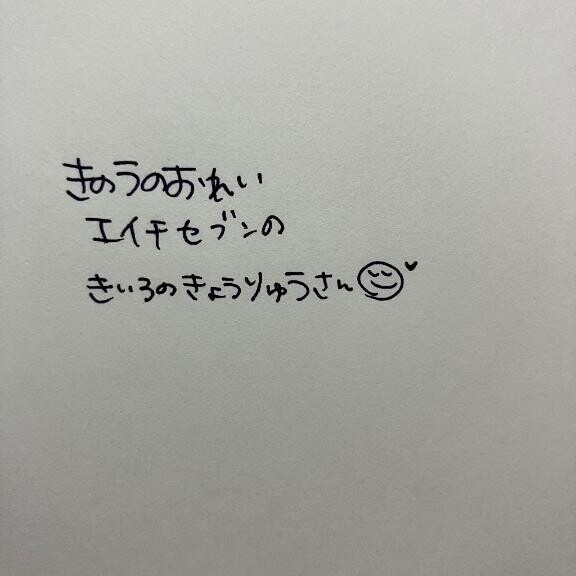 きのうのおれい
エイチセブンの
きいろのきょうりゅうさん